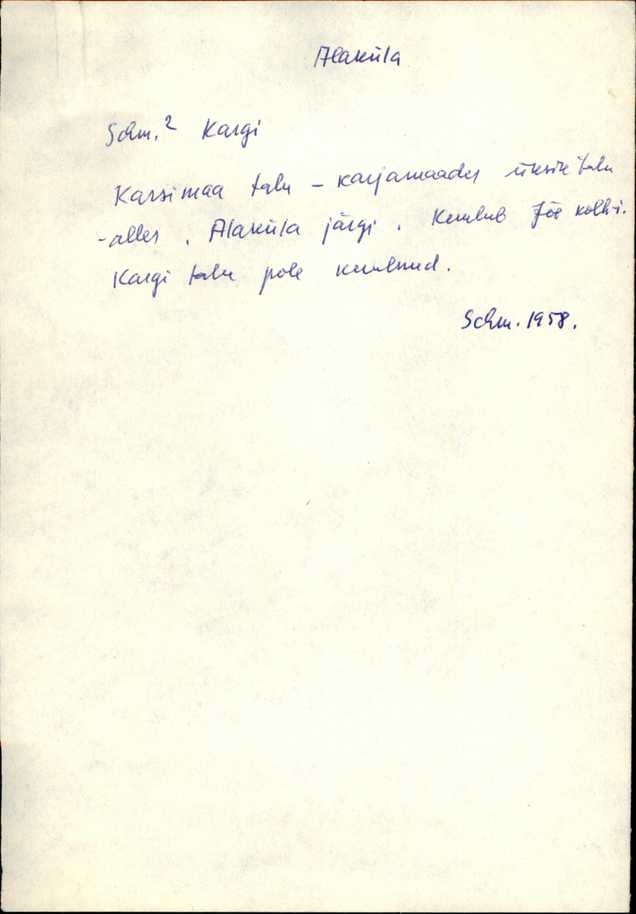 Alaküla
Schm.² Kargi
Karsimaa talu – karjamaades üksik talu
-alles. Alaküla järgi. Kuulub Jõe kolh-i.
Kargi talu pole kuulnud.
Schm. 1958.